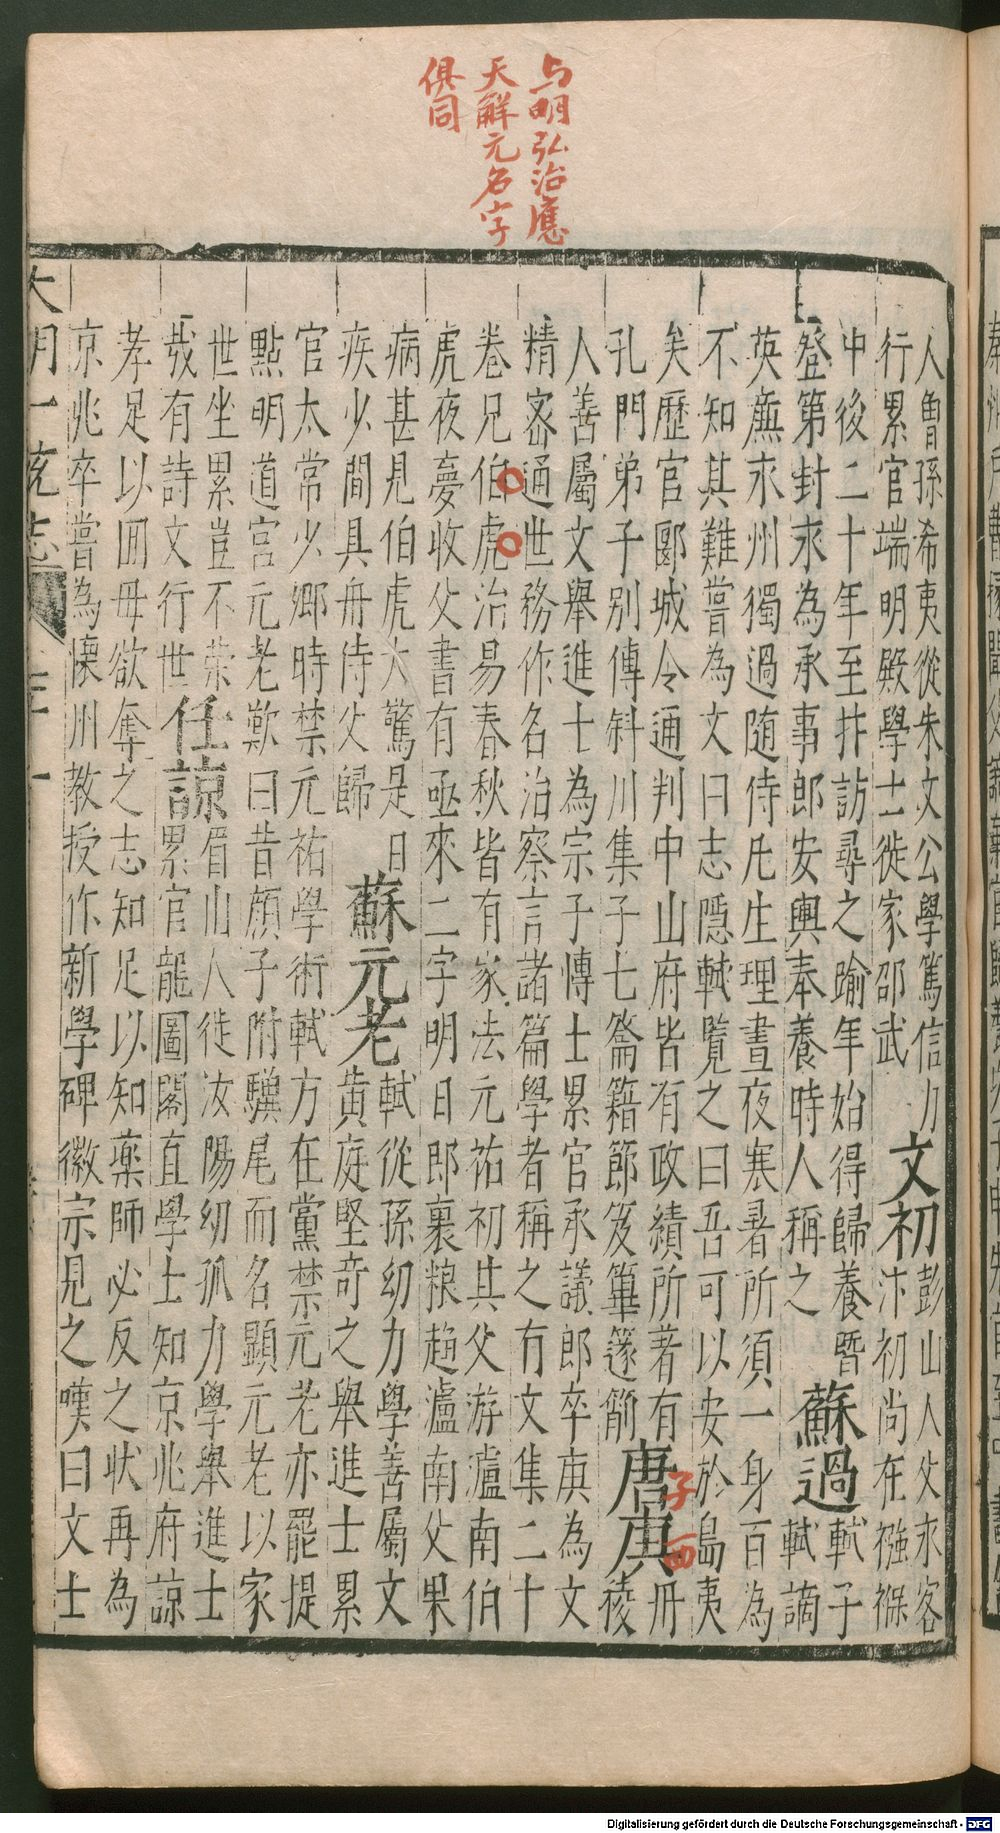 与明弘治應
天解元名字
俱同
人曾孫希夷從朱文公學篤信力
行累官端明殿學士徙家邵武
文初
彭山人父求客
汴初尚在襁褓
中後二十年至抃訪尋之踰年始得歸養暨
登第封求為承事郎安輿奉養時人稱之
蘇過
軾子
軾謫
英廉永州獨過随侍凡生理晝夜寒暑所須一身百為
不知其難嘗為文曰志隱軾覽之曰吾可以安於島夷
矣歷官郾城令通判中山府皆有政績所著有
孔門弟子別傳斜川集子七籥籍節笈篳籧箾
唐庚
子西
丹
稜
人善屬文舉進士為宗子博士累官承議郎卒庚為文
精密通世務作名治察言諸篇學者稱之有文集二十
卷兄伯虎治易春秋皆有家法元祐初其父游瀘南伯
虎夜夢收父書有亟來二字明日郎裹粮趨瀘南父果
病甚見伯虎大驚是日
疾少間具舟侍父歸
蘇元老
軾從孫幼力學善屬文
黄庭堅奇之舉進士累
官太常少卿時禁元祐學術軾方在黨禁元老亦罷提
點明道宮元老歎曰昔顏子附驥尾而名顯元老以家
世坐累豈不榮
哉有詩文行世
任諒
眉山人徙汝陽幼孤力學舉進士
累官龍圖閣直學士知京兆府諒
孝足以回母欲奪之志知足以知藥師必反之狀再為
京兆卒嘗為懷州教授作新學碑徽宗見之嘆曰文士
大明一統志
Digitalisierung gefördert durch die Deutsche Forschungsgemeinschaft - DFG